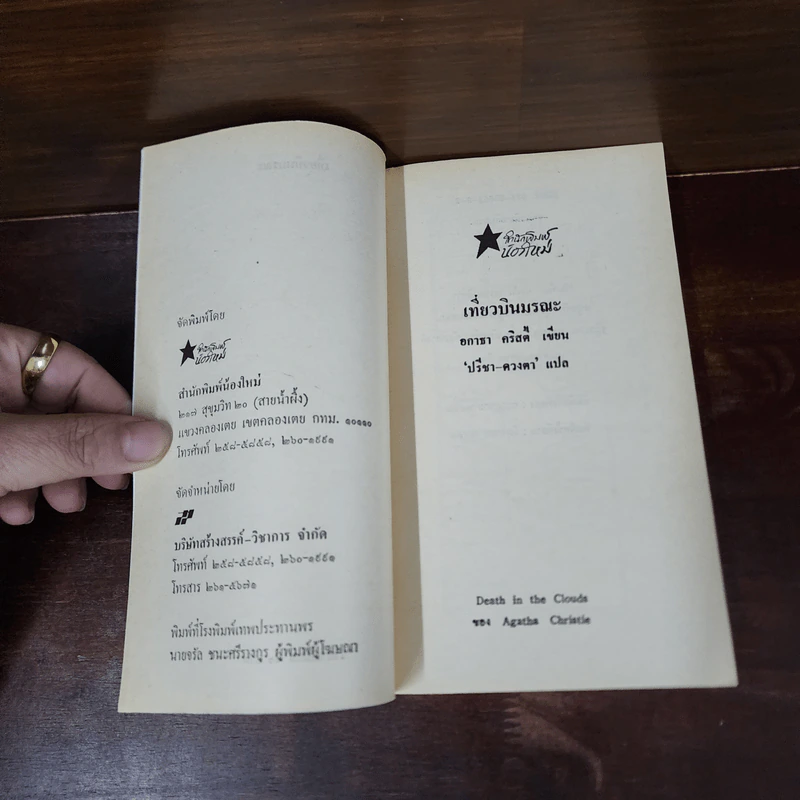 จัดพิมพ์โดย
สำนักพิมพ์
น้องใหม่
สำนักพิมพ์น้องใหม่
๒๑๗ สุขุมวิท ๒๐ (สายน้ำผึ้ง)
แขวงคลองเตย เขตคลองเตย กทม. ๑๐๑๑๐
โทรศัพท์ ๒๕๘-๕๘๕๘, ๒๖๐-๑๙๙๑
จัดจำหน่ายโดย
บริษัทสร้างสรรค์-วิชาการ จำกัด
โทรศัพท์ ๒๕๘-๕๘๕๘, ๒๖๐-๑๙๙๑
โทรสาร ๒๖๑-๕๖๗๑
พิมพ์ที่โรงพิมพ์เทพประทานพร
นายจรัล ชนะศรีรางกูร ผู้พิมพ์ผู้โฆษณา
สำนักพิมพ์
น้องใหม่
เที่ยวบินมรณะ
อกาธา คริสตี้ เขียน
'ปรีชา-ดวงตา' แปล
Death in the Clouds
ของ Agatha Christie